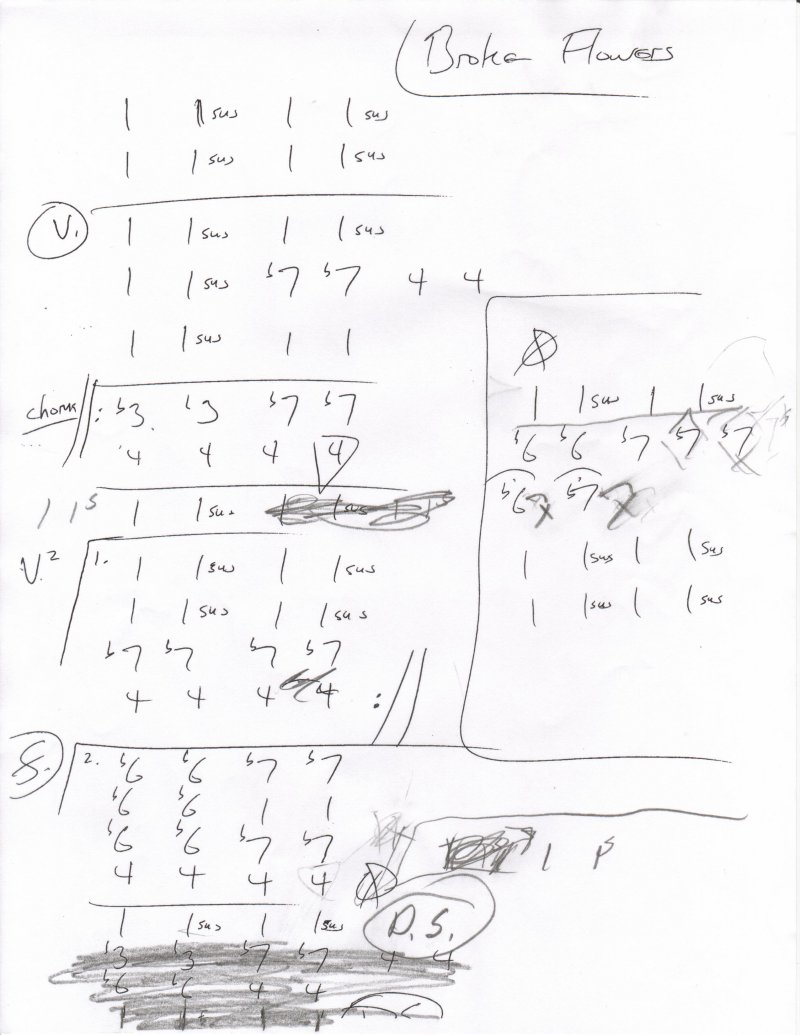 Broke Flowers
1 1sus 1 1sus
1 1sus 1 1sus
V. 1 1sus 1 1sus
1 1sus b7 b7 4 4
1 1sus 1 1
chorus //: b3 b3 b7 b7
4 4 4 4
1 1s 1 1sus
V.2 1. 1 1sus 1 1sus
1 1sus 1 1sus
b7 b7 b7 b7
4 4 4 4 ://
2. b6 b6 b7 b7
b6 b6 1 1
b6 b6 b7 b7
4 4 4 4
1 1sus 1 1sus
b3 b3 b7 b7 4 4
b6 b6 4 4
1 1 1 1
1 1sus 1 1sus
b6 b6 b7 b7 b7
b6 b7
1 1sus 1 1sus
1 1sus 1 1sus
1 1s
D.S.